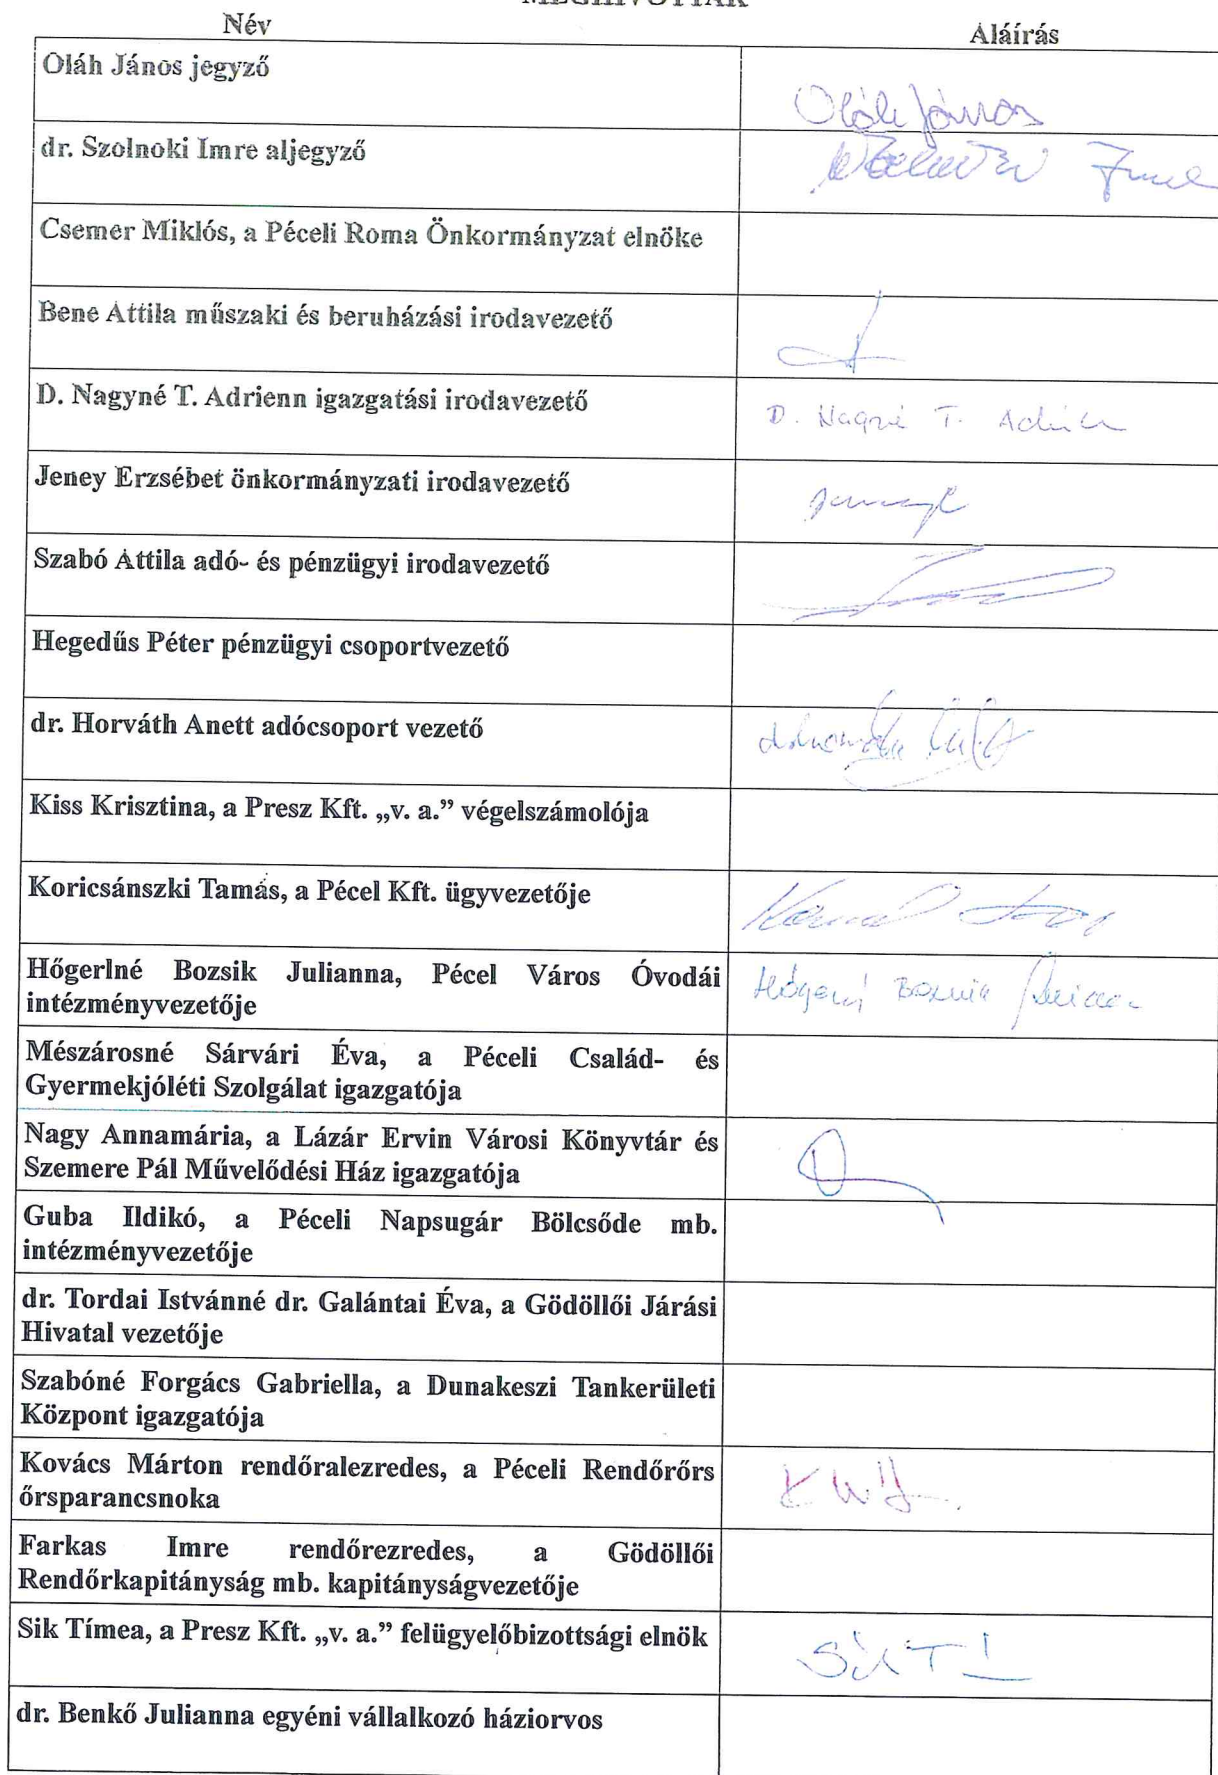 MEGHÍVOTTAK
Név Aláírás
Oláh János jegyző
Oláh János
dr. Szolnoki Imre aljegyző
Imre
Csemer Miklós, a Péceli Roma Önkormányzat elnöke
Bene Attila műszaki és beruházási irodavezető
D. Nagyné T. Adrienn igazgatási irodavezető
D. Nagyné T. Adrienn
Jeney Erzsébet önkormányzati irodavezető
Szabó Attila adó- és pénzügyi irodavezető
Hegedűs Péter pénzügyi csoportvezető
dr. Horváth Anett adócsoport vezető
Kiss Krisztina, a Presz Kft. „v. a.” végelszámolója
Koricsánszki Tamás, a Pécel Kft. ügyvezetője
Hőgerlné Bozsik Julianna, Pécel Város Óvodái
intézményvezetője
Mészárosné Sárvári Éva, a Péceli Család- és
Gyermekjóléti Szolgálat igazgatója
Nagy Annamária, a Lázár Ervin Városi Könyvtár és
Szemere Pál Művelődési Ház igazgatója
Guba Ildikó, a Péceli Napsugár Bölcsőde mb.
intézményvezetője
dr. Tordai Istvánné dr. Galántai Éva, a Gödöllői Járási
Hivatal vezetője
Szabóné Forgács Gabriella, a Dunakeszi Tankerületi
Központ igazgatója
Kovács Márton rendőralezredes, a Péceli Rendőrőrs
őrsparancsnoka
Farkas Imre rendőrezredes, a Gödöllői
Rendőrkapitányság mb. kapitányságvezetője
Sik Tímea, a Presz Kft. „v. a.” felügyelőbizottsági elnök
dr. Benkő Julianna egyéni vállalkozó háziorvos